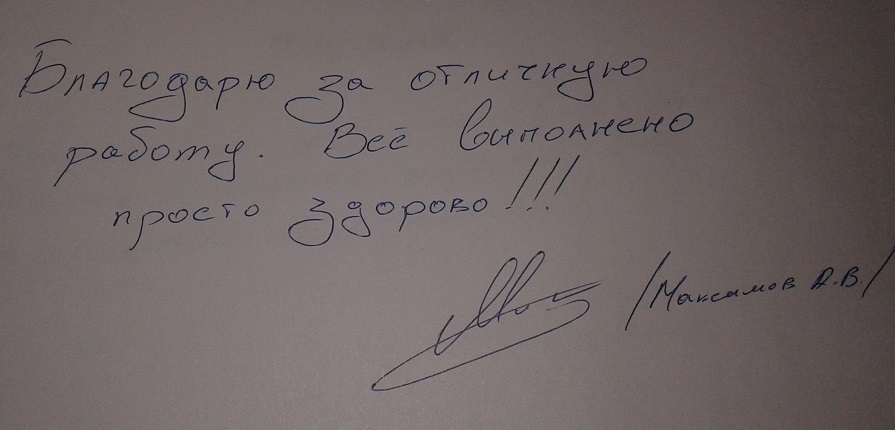 Благодарю за отличную
работу. Всё выполнено
просто здорово!!!
/Максимов А.В./